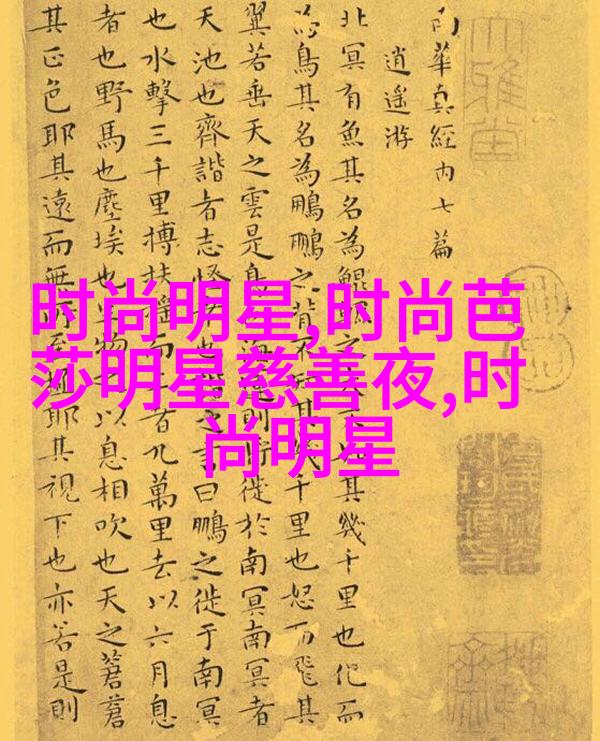 时尚明星,时尚芭
莎明星慈善夜,时
尚明星
南華真經内七篇
逍遙游
北冥有魚其名為鯤鯤之大不知其幾千里也化而
為鳥其名為鵬鵬之背不知其幾千里也怒而飛其
翼若垂天之雲是鳥也海運則將徙於南冥南冥者
天池也齊諧者志怪者也諧之言曰鵬之徙于南冥
也水擊三千里搏扶搖而上者九萬里去以六月息
者也野馬也塵埃也生物之以息相吹也天之蒼蒼
其正色耶其遠而無所至極耶其視下也亦若是則